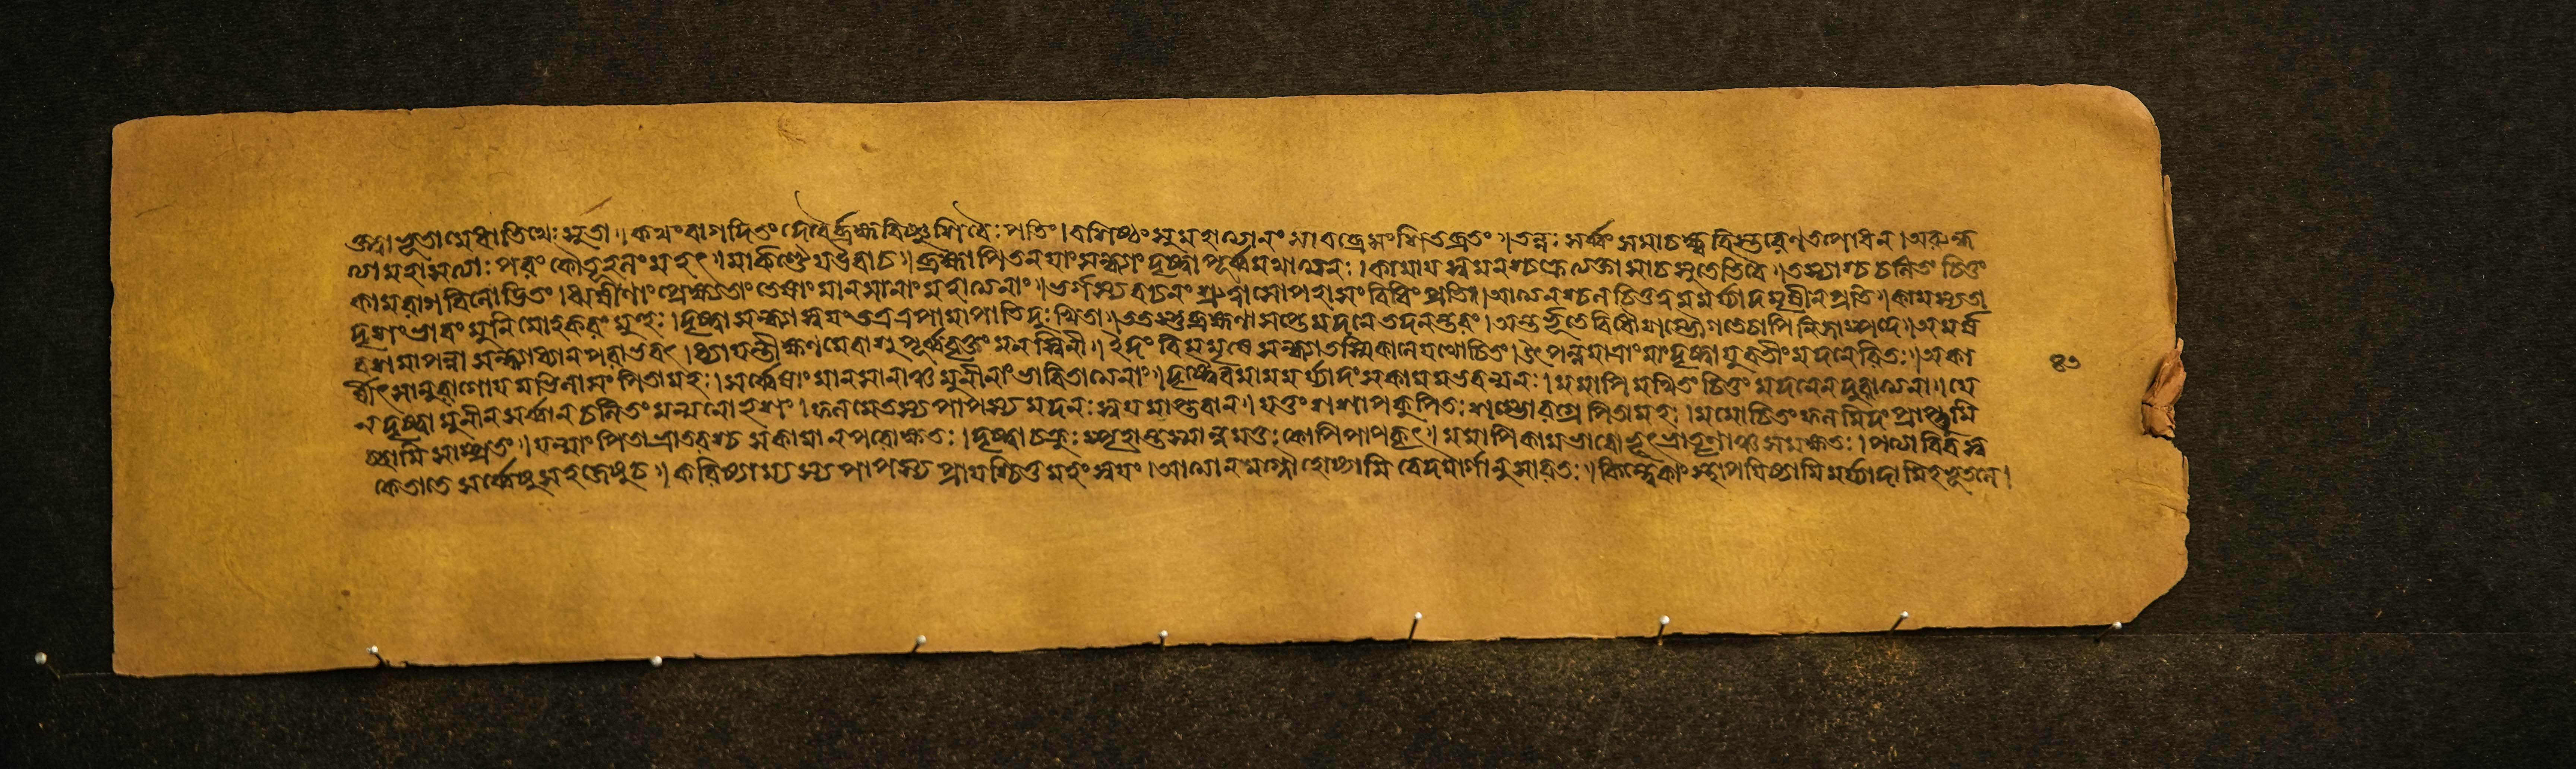 ভূত্বা ভূতা মেধাতিথেঃ সুতা॥ কথং বাগদিতং দেবৈর্ব্রহ্মবিষ্ণুশিবৈঃ পতিং। বশিষ্ঠং সুমহাত্মানং সা বব্রে সংশিতব্রতং॥ তন্নঃ সর্ব্বং সমাচক্ষ্ব বিস্তরেণ তপোধন। অরুন্ধ
মহাসত্যাঃ পরং কৌতূহলং মহৎ॥ মার্কণ্ডেয় উবাচ॥ ব্রহ্মাপি তনয়াং সন্ধ্যাং দৃষ্ট্বা পূর্ব্বমথাত্মনঃ। কামায় মনশ্চক্রে ত্যক্তা সা চ সুতেতি বৈ॥ তস্যাশ্চ চলিতং চিত্তং
কামবাণবিলোড়িতং। ঋষীণাং প্রেক্ষতাং তেষাং মানসানাং মহাত্মনাং॥ ভর্গস্য বচনং শ্রুত্বা সোপহাসং বিধিং প্রতি। আত্মনশ্চ চিত্তং মমর্য্যাদমৃষীন্ প্রতি॥ কামস্য তা
দৃশং ভাবং মুনিমোহকরং মুহুঃ। দৃষ্ট্বা সন্ধ্যা স্বয়ং পামাপাতিদুঃখিতা॥ ততস্তু ব্রহ্মণা শপ্তে মদনে তদনন্তরং। অন্তর্হূতে বিধৌ শম্ভৌ গতে চাপি নিজাস্পদে॥ অমর্ষ
বশমাপন্না সন্ধ্যা ধ্যানপরাভবৎ। ধ্যায়ন্তী ক্ষণমেবাশু পূর্ব্ববৃত্তং মনস্বিনী॥ ইদং বিমমৃষে সন্ধ্যা তস্মিন্কালে যথোচিতং। উৎপন্নমাত্রাং মাং দৃষ্ট্বা যুবতীং মদনেরিতঃ॥ অকা
র্ষীৎ সানুরাগোয়মভিলাসং পিতামহঃ। সর্ব্বেষাং মানসানাঞ্চ মুনীনাং ভাবিতাত্মনাং॥ দৃষ্ট্বৈব মামমর্য্যাদং সকামমভবন্মনঃ। মমাপি মথিতং চিত্তং মদনেন দুরাত্মনা॥ যে
ন দৃষ্ট্বা মুনীন্ সর্ব্বান্ চলিতং মন্মনো ভৃশং। ফলমেতস্য পাপস্য মদনঃ স্বয়মাপ্তবান॥ যত্তং শশাপ কুপিতঃ শম্ভোরগ্রে পিতামহঃ। মমোচিতং ফলমিদং প্রাপ্তুমি
চ্ছামি সাম্প্রতং॥ যন্মাং পিতা ভ্রাতরশ্চ সকামানপরোক্ষতঃ। দৃষ্ট্বা চক্রুঃ স্পৃহাং তস্মান্ন মত্তঃ কোপি পাপকৃৎ॥ মমাপি কামভাবোভূৎ সমক্ষতঃ। পত্যাবিব স্ব
কে তাতে সর্ব্বেষু সহজেষু চ॥ করিষ্যাম্যস্য পাপস্য প্রায়শ্চিত্তমহং স্বয়ং। আত্মানমগ্নৌ হোষ্যামি বেদমার্গানুসারতঃ॥ কিন্ত্বেকাং স্থাপয়িষ্যামি মর্য্যাদামিহ ভূতলে।
৪১